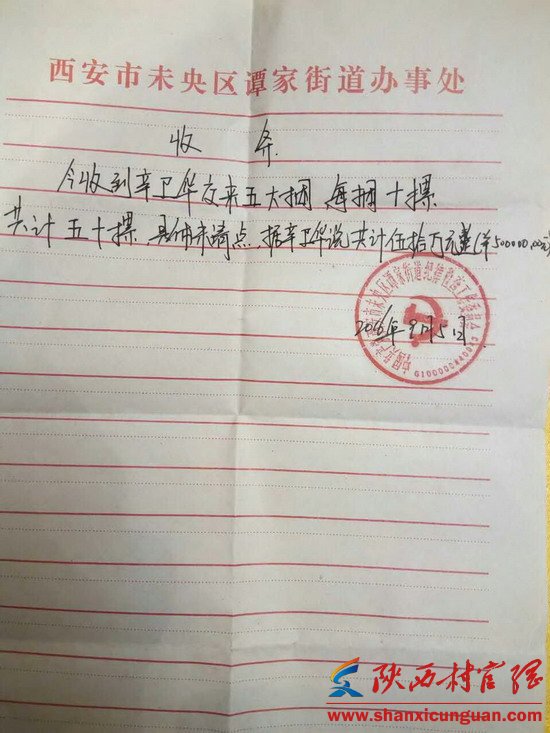 西安市未央区谭家街道办事处
收 条
今收到辛卫华交来五大捆 每捆十摞
共计五十摞 具体未清点 据辛卫华说共计伍拾万元整(¥500000.00元)
2016年9月5日
陕西村官网
www.shanxicunguan.com